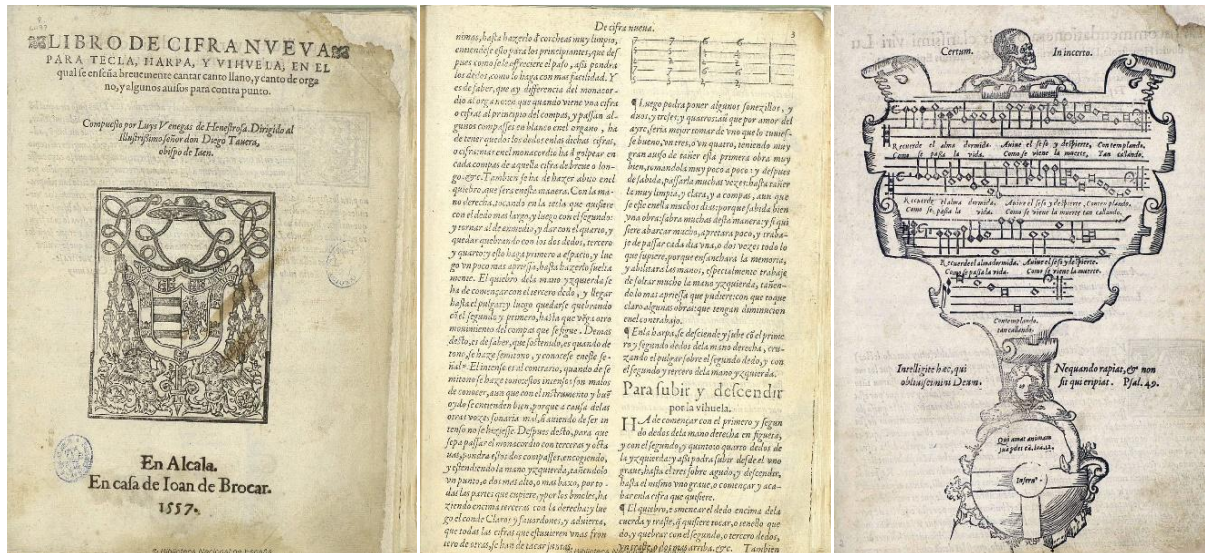 LIBRO DE CIFRA NVEVA
PARA TECLA, HARPA, Y VIHVELA, EN EL
qual se enseña breuemente cantar canto llano, y canto de orga
no, y algunos auisos para contra punto.
Compuesto por Luys Venegas de Henestrosa. Dirigido al
Illustrissimo señor don Diego Tauera,
obispo de Iaen.
En Alcala.
En casa de Ioan de Brocar.
1557.
De cifra nueua.
3
nimas, hasta hazerlo d̃ corcheas muy limpio,
entiendese esto para los principiantes, que des
pues como se le ofreciere el passo, assi pondra
los dedos, como lo haga con mas facilidad. Y
es de saber, que ay differencia del monacor-
dio al organo: en que quando viene vna cifra
o cifras al principio del compas, y passan al-
gunos compasses en blanco en el organo, ha
de tener quedos los dedos en las dichas cifras,
o cifra: mas en el monacordio ha d̃ golpear en
cada compas de aquella cifra de breue o lon-
go. &c. Tambien se ha de hazer abito en el
quiebro, que sera en esta manera. Con la ma-
no derecha, tocando en la tecla que quisiere
con el dedo mas largo, y luego con el segundo:
y tornar al de enmedio, y dar con el quarto, y
quedar quebrando con los dos dedos, tercero
y quarto: y esto haga primero a espacio, y lue
go vn poco mas apriessa, hasta hazerlo suelta
mente. El quiebro dela mano yzquierda se
ha de començar con el tercero dedo, y llegar
hasta el pulgar: y luego quedarse quebrando
cõ el segundo y primero, hasta que vẽga otro
mouimiento del compas que se sigue. Demas
desto, es de saber, que sostenido, es quando de
tono, se haze semitono, y conocese en esta se-
ñal
El intenso es al contrario, quando de se
mitono se haze tono: estos intensos son malos
de conocer, aun que con el instrumento y buẽ
oydo se entienden bien, porque a causa delas
otras vozes sonaria mal, si auiendo de ser in
tenso no se hiziesse. Despues desto, para que
sepa passar el monacordio con terceras y octa
uas, pondra estos dos compasses, encogiendo,
y estendiendo la mano yzquierda, tañendolo
vn punto, o dos mas alto, o mas baxo, por to-
das las partes que cupiere, y por los bmoles, ha
ziendo en cima terceras con la derecha: y lue
go el conde Claros y fauordones, y aduierta,
que todas las cifras que estuuieren vnas fron
tero de otras, se han de tocar juntas.
¶ Luego podra poner algunos sonezillos, y
duos, y tresses, y quatros: aũ que por amor del
ayre, seria mejor tomar de vno que lo tuuies-
se bueno, vn tres, o vn quatro, teniendo muy
gran auiso de tañer esta primera obra muy
bien, tomandola muy poco a poco: y despues
de sabida, passarla muchas vezes: hasta tañer
la muy limpia, y clara, y a compas, aun que
se este en ella muchos dias: porque sabida bien
vna obra: sabra muchas desta manera: y si qui
siere abarcar mucho, apretara poco, y traba-
je de passar cada dia vna, o dos vezes todo lo
que supiere, porque ensanchara la memoria,
y abilitara las manos, especialmente trabaje
de soltar mucho la mano yzquierda, tañen-
do lo mas apriessa que pudiere: con que toque
claro algunas obras: que tengan diminucion
en el contrabajo.
¶ En la harpa, se desciende y sube cõ el prime
ro y segundo dedos dela mano derecha, cru-
zando el pulgar sobre el segundo dedo, y con
el segundo y tercero dela mano yzquierda.
Para subir y descendir
por la vihuela.
HA de començar con el primero y segun
do dedos dela mano derecha en figueta,
y con el segundo, y quinto o quarto dedos de
la yzquierda: y assi podra subir desde el vno
graue, hasta el tres sobre agudo, y descender,
hasta el mismo vno graue, o començar y aca-
bar en la cifra que quisiere.
¶ El quiebro, es menear el dedo encima dela
cuerda y traste, q̃ quisiere tocar, o tenello que
do, y quebrar con el segundo, o tercero dedos,
vn traste, o dos mas arriba. &c. Tambien
Certum. In incerto.
Recuerde el alma dormida. Auiue el seso y despierte, Contemplando,
Como se passa la vida. Como se viene la muerte, Tan callando.
Recuerde el alma dormida, Auiue el seso y despierte, Contemplando.
Como se passa la vida. Como se viene la muerte tan callando.
Recuerde el alma dormida. Auiue el seso y despierte.
Como se passa la vida. Como se viene la muerte.
Contemplando.
tan callando.
Intelligite hæc, qui
obliuiscimini Deum.
Nequando rapiat, & non
sit qui eripiat. Psal. 49.
Qui amat animam